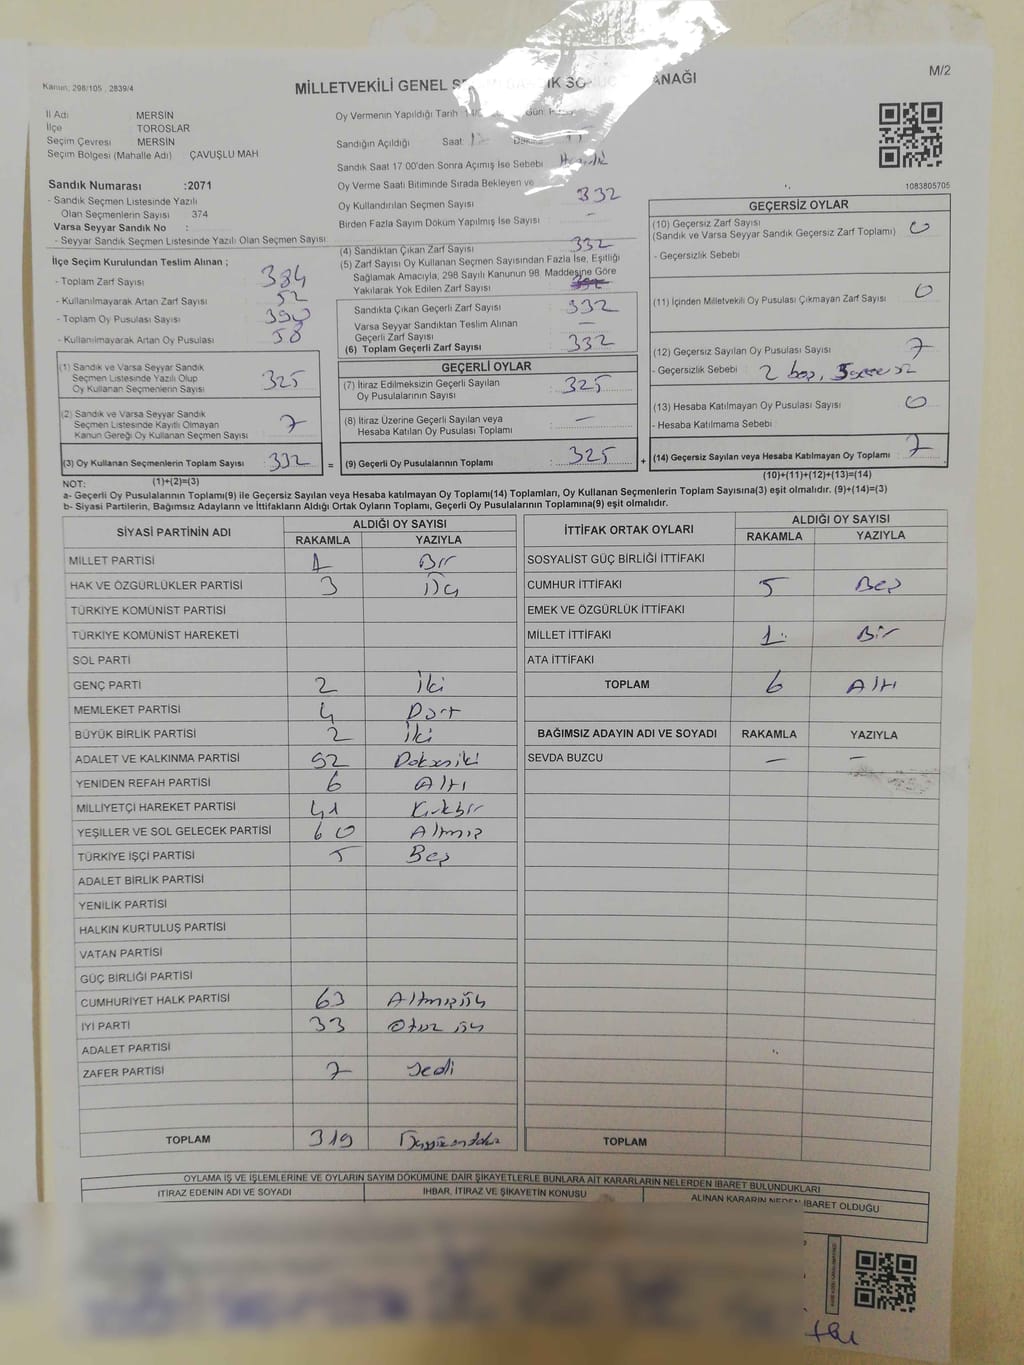 Kanun, 298/105 , 2839/4
MİLLETVEKİLİ GENEL
M/2
İl Adı MERSİN
İlçe TOROSLAR
Seçim Çevresi MERSİN
Seçim Bölgesi (Mahalle Adı) ÇAVUŞLU MAH
Sandık Numarası :2071
- Sandık Seçmen Listesinde Yazılı
Olan Seçmenlerin Sayısı 374
Varsa Seyyar Sandık No :
- Seyyar Sandık Seçmen Listesinde Yazılı Olan Seçmen Sayısı
Oy Vermenin Yapıldığı Tarih
Sandığın Açıldığı Saat
Sandık Saat 17.00'den Sonra Açımış İse Sebebi
Oy Verme Saati Bitiminde Sırada Bekleyen ve
Oy Kullandırılan Seçmen Sayısı 332
Birden Fazla Sayım Döküm Yapılmış İse Sayısı : —
1083805705
İlçe Seçim Kurulundan Teslim Alınan ;
- Toplam Zarf Sayısı : 384
- Kullanılmayarak Artan Zarf Sayısı : 52
- Toplam Oy Pusulası Sayısı : 390
- Kullanılmayarak Artan Oy Pusulası : 58
(1) Sandık ve Varsa Seyyar Sandık
Seçmen Listesinde Yazılı Olup
Oy Kullanan Seçmenlerin Sayısı : 325
(2) Sandık ve Varsa Seyyar Sandık
Seçmen Listesinde Kayıtlı Olmayan
Kanun Gereği Oy Kullanan Seçmen Sayısı : 7
(3) Oy Kullanan Seçmenlerin Toplam Sayısı : 332
(1)+(2)=(3)
(4) Sandıktan Çıkan Zarf Sayısı 332
(5) Zarf Sayısı Oy Kullanan Seçmen Sayısından Fazla İse, Eşitliği
Sağlamak Amacıyla, 298 Sayılı Kanunun 98. Maddesine Göre
Yakılarak Yok Edilen Zarf Sayısı
Sandıkta Çıkan Geçerli Zarf Sayısı : 332
Varsa Seyyar Sandıktan Teslim Alınan
Geçerli Zarf Sayısı : —
(6) Toplam Geçerli Zarf Sayısı : 332
GEÇERLİ OYLAR
(7) İtiraz Edilmeksizin Geçerli Sayılan
Oy Pusulalarının Sayısı : 325
(8) İtiraz Üzerine Geçerli Sayılan veya
Hesaba Katılan Oy Pusulası Toplamı : —
= (9) Geçerli Oy Pusulalarının Toplamı : 325 +
GEÇERSİZ OYLAR
(10) Geçersiz Zarf Sayısı
(Sandık ve Varsa Seyyar Sandık Geçersiz Zarf Toplamı) : 0
- Geçersizlik Sebebi
(11) İçinden Milletvekili Oy Pusulası Çıkmayan Zarf Sayısı : 0
(12) Geçersiz Sayılan Oy Pusulası Sayısı : 7
- Geçersizlik Sebebi : 2 boş,
(13) Hesaba Katılmayan Oy Pusulası Sayısı : 0
- Hesaba Katılmama Sebebi :
(14) Geçersiz Sayılan veya Hesaba Katılmayan Oy Toplamı : 7
(10)+(11)+(12)+(13)=(14)
NOT:
a- Geçerli Oy Pusulalarının Toplamı(9) ile Geçersiz Sayılan veya Hesaba katılmayan Oy Toplamı(14) Toplamları, Oy Kullanan Seçmenlerin Toplam Sayısına(3) eşit olmalıdır. (9)+(14)=(3)
b- Siyasi Partilerin, Bağımsız Adayların ve İttifakların Aldığı Ortak Oyların Toplamı, Geçerli Oy Pusulalarının Toplamına(9) eşit olmalıdır.
SİYASİ PARTİNİN ADI ALDIĞI OY SAYISI
RAKAMLA YAZIYLA
MİLLET PARTİSİ 1 Bir
HAK VE ÖZGÜRLÜKLER PARTİSİ 3 Üç
TÜRKİYE KOMÜNİST PARTİSİ
TÜRKİYE KOMÜNİST HAREKETİ
SOL PARTİ
GENÇ PARTİ 2 İki
MEMLEKET PARTİSİ 4 Dört
BÜYÜK BİRLİK PARTİSİ 2 İki
ADALET VE KALKINMA PARTİSİ 92 Doksaniki
YENİDEN REFAH PARTİSİ 6 Altı
MİLLİYETÇİ HAREKET PARTİSİ 41 Kırkbir
YEŞİLLER VE SOL GELECEK PARTİSİ 60 Altmış
TÜRKİYE İŞÇİ PARTİSİ 5 Beş
ADALET BİRLİK PARTİSİ
YENİLİK PARTİSİ
HALKIN KURTULUŞ PARTİSİ
VATAN PARTİSİ
GÜÇ BİRLİĞİ PARTİSİ
CUMHURİYET HALK PARTİSİ 63 Altmışüç
İYİ PARTİ 33 Otuz üç
ADALET PARTİSİ
ZAFER PARTİSİ 7 Yedi
TOPLAM 319
İTTİFAK ORTAK OYLARI ALDIĞI OY SAYISI
RAKAMLA YAZIYLA
SOSYALİST GÜÇ BİRLİĞİ İTTİFAKI
CUMHUR İTTİFAKI 5 Beş
EMEK VE ÖZGÜRLÜK İTTİFAKI
MİLLET İTTİFAKI 1 Bir
ATA İTTİFAKI
TOPLAM 6 Altı
BAĞIMSIZ ADAYIN ADI VE SOYADI RAKAMLA YAZIYLA
SEVDA BUZCU — —
TOPLAM
OYLAMA İŞ VE İŞLEMLERİNE VE OYLARIN SAYIM DÖKÜMÜNE DAİR ŞİKAYETLERLE BUNLARA AİT KARARLARIN NELERDEN İBARET BULUNDUKLARI
İTİRAZ EDENİN ADI VE SOYADI İHBAR, İTİRAZ VE ŞİKAYETİN KONUSU ALINAN KARARIN NEDEN İBARET OLDUĞU